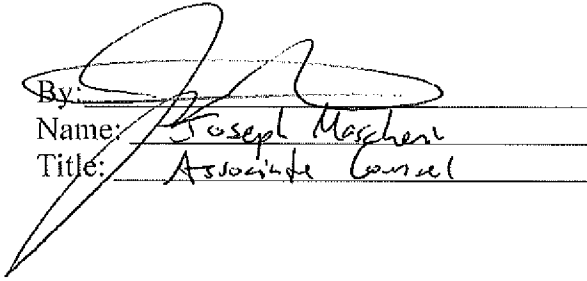 By:
Name: Joseph
Title: Associate Counsel